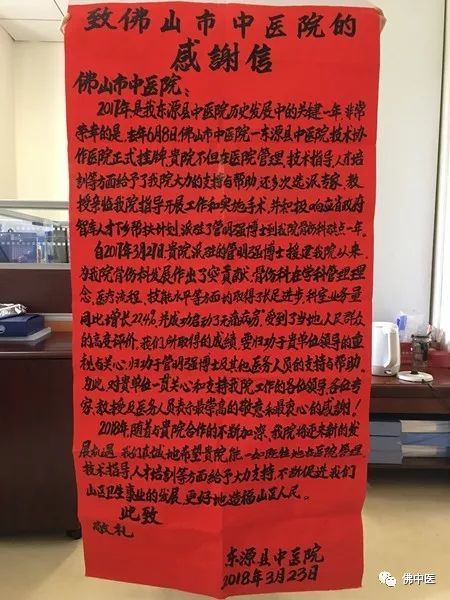 致佛山市中医院的
感謝信
佛山市中医院：
2017年是我东源县中医院历史发展中的关键一年，非常
荣幸的是，去年6月8日佛山市中医院—东源县中医院技术协
作医院正式挂牌，贵院不但在医院管理、技术指导、人才培
训等方面给予了我院大力的支持与帮助，还多次选派专家、教
授亲临我院指导开展工作和实施手术，并积极响应省政府
智库人才下乡帮扶计划，派驻了管明强博士到我院骨伤科驻点一年。
自2017年3月27日，贵院派驻的管明强博士援建我院以来，
为我院骨伤科发展作出了突出贡献，骨伤科在学科管理理
念、医疗流程、技能水平等方面均取得了长足进步，科室业务量
同比增长22.4%，并成功启动了无痛病房，受到了当地人民群众
的高度评价，我们所取得的成绩，要归功于贵单位领导的重
视与关心，归功于管明强博士及其他医务人员的支持与帮助。
为此，对贵单位一贯关心和支持我院工作的各位领导、各位专
家、教授及医务人员表示最崇高的敬意和最衷心的感谢！
2018年，随着与贵院合作的不断加深，我院将迎来新的发
展机遇，我们真诚地希望贵院能一如既往地在医院管理、
技术指导、人才培训等方面给予大力支持，不断促进我们
山区卫生事业的发展，更好地造福山区人民。
此致
敬礼
东源县中医院
2018年3月23日
佛中医